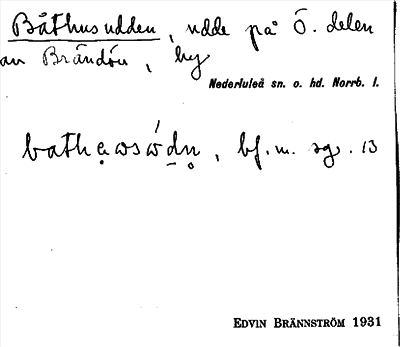 Båthusudden, udde på Ö. delen
av Brändön, by
Nederluleå sn. o. hd. Norrb. l.
bf. m. sg. 13
EDVIN BRÄNNSTRÖM 1931